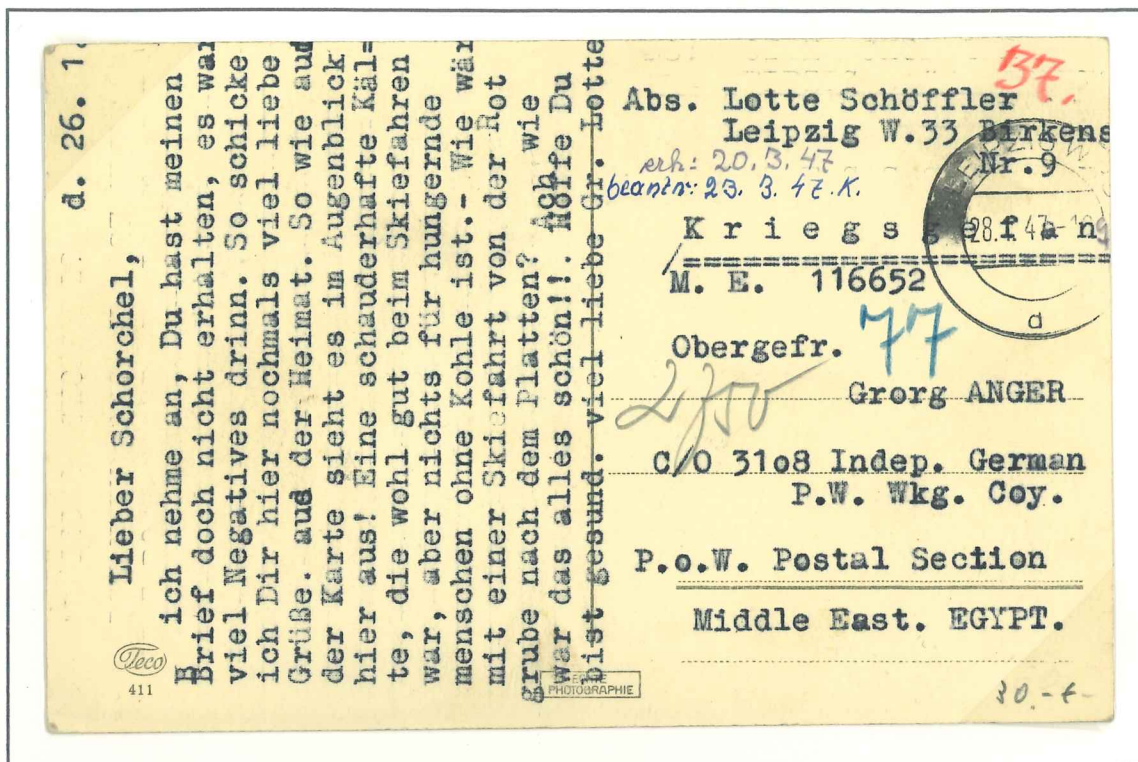 d. 26. 1.
Lieber Schorchel,
ich nehme an, Du hast meinen
Brief doch nicht erhalten, es war
viel Negatives drinn. So schicke
ich Dir hier nochmals viel liebe
Grüße. aud der Heimat. So wie auf
der Karte sieht es im Augenblick
hier aus! Eine schauderhafte Käl=
te, die wohl gut beim Skiefahren
war, aber nichts für hungernde
menschen ohne Kohle ist.- Wie wär
mit einer Skiefahrt von der Rot
grube nach dem Platten? Ach wie
war das alles schön!!. Hoffe Du
bist gesund. viel liebe Gr. Lotte
Teco
411
ECHTE
PHOTOGRAPHIE
37.
Abs. Lotte Schöffler
Leipzig W.33 Birkens
Nr.9
erh: 20.3.47
beantw: 23. 3. 47. K.
LEIPZIG W
28.1.47
d
Kriegsgefan
M. E. 116652
77
Obergefr.
Grorg ANGER
C/O 3108 Indep. German
P.W. Wkg. Coy.
P.o.W. Postal Section
Middle East. EGYPT.
30.-